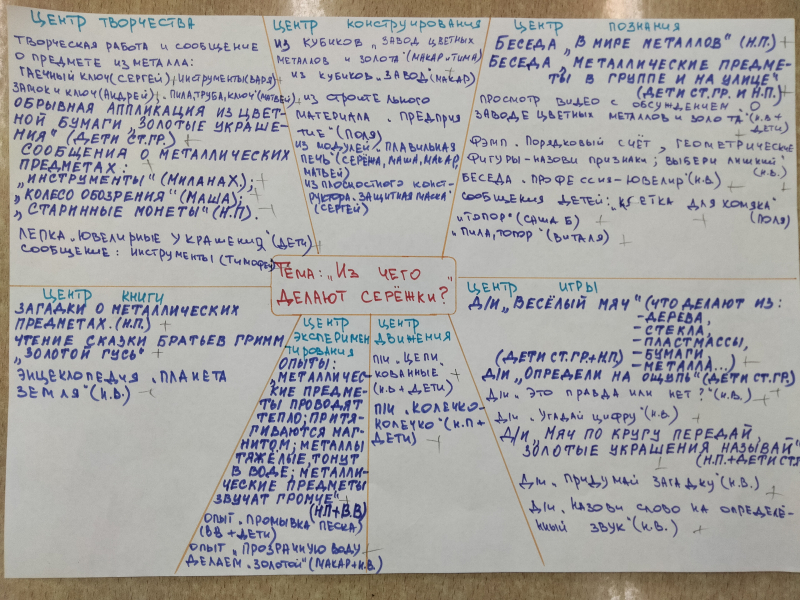 ЦЕНТР ТВОРЧЕСТВА
ТВОРЧЕСКАЯ РАБОТА И СООБЩЕНИЕ
О ПРЕДМЕТЕ ИЗ МЕТАЛЛА:
ГАЕЧНЫЙ КЛЮЧ (СЕРГЕЙ); ИНСТРУМЕНТЫ (ВАРЯ)
ЗАМОК И КЛЮЧ (АНДРЕЙ); ПИЛА, ТРУБА, КЛЮЧ" (МАТВЕЙ) +
ОБРЫВНАЯ АППЛИКАЦИЯ ИЗ ЦВЕТ-
НОЙ БУМАГИ „ЗОЛОТЫЕ УКРАШЕ-
НИЯ" (ДЕТИ СТ. ГР.) +
СООБЩЕНИЯ О МЕТАЛЛИЧЕСКИХ
ПРЕДМЕТАХ: +
„ИНСТРУМЕНТЫ" (МИЛАНАХ.); +
„КОЛЕСО ОБОЗРЕНИЯ" (МАША); +
„СТАРИННЫЕ МОНЕТЫ" (Н.П.). +
ЛЕПКА „ЮВЕЛИРНЫЕ УКРАШЕНИЯ" (ДЕТИ) +
СООБЩЕНИЕ: ИНСТРУМЕНТЫ (ТИМОФЕЙ)
ЦЕНТР КОНСТРУИРОВАНИЯ
ИЗ КУБИКОВ „ЗАВОД ЦВЕТНЫХ
МЕТАЛЛОВ И ЗОЛОТА" (МАКАР И ТИМА) +
ИЗ КУБИКОВ „ЗАВОД" (МАКАР)
ИЗ СТРОИТЕЛЬНОГО
МАТЕРИАЛА „ПРЕДПРИЯ
ТИЕ" (ПОЛЯ)
ИЗ МОДУЛЕЙ „ПЛАВИЛЬНАЯ
ПЕЧЬ" (СЕРЁЖА, МАША, МАКАР,
МАТВЕЙ)
ИЗ ПЛОСКОСТНОГО КОНСТ-
РУКТОРА „ЗАЩИТНАЯ МАСКА"
(СЕРГЕЙ)
ЦЕНТР ПОЗНАНИЯ
БЕСЕДА „В МИРЕ МЕТАЛЛОВ" (Н.П.) +
БЕСЕДА „МЕТАЛЛИЧЕСКИЕ ПРЕДМЕ-
ТЫ В ГРУППЕ И НА УЛИЦЕ"
(ДЕТИ СТ. ГР. И Н.П.) +
ПРОСМОТР ВИДЕО С ОБСУЖДЕНИЕМ О
ЗАВОДЕ ЦВЕТНЫХ МЕТАЛЛОВ И ЗОЛОТА" (Н.В +
ДЕТИ)
ФЭМП. ПОРЯДКОВЫЙ СЧЁТ, ГЕОМЕТРИЧЕСКИЕ
ФИГУРЫ - НАЗОВИ ПРИЗНАКИ; ВЫБЕРИ ЛИШНИЙ"
(Н.В.) +
БЕСЕДА „ПРОФЕССИЯ - ЮВЕЛИР" (Н.В.) +
СООБЩЕНИЯ ДЕТЕЙ: „КЛЕТКА ДЛЯ ХОМЯКА"
(ПОЛЯ)
„ТОПОР" (САША Б) +
„ПИЛА, ТОПОР" (ВИТАЛЯ) +
ТЕМА: „ИЗ ЧЕГО
ДЕЛАЮТ СЕРЁЖКИ?"
ЦЕНТР КНИГИ
ЗАГАДКИ О МЕТАЛЛИЧЕСКИХ
ПРЕДМЕТАХ. (Н.П.) +
ЧТЕНИЕ СКАЗКИ БРАТЬЕВ ГРИММ
„ЗОЛОТОЙ ГУСЬ" +
ЭНЦЕКЛОПЕДИЯ „ПЛАНЕТА
ЗЕМЛЯ" (Н.В.) +
ЦЕНТР
ЭКСПЕРИМЕН
ТИРОВАНИЯ
ОПЫТЫ:
„МЕТАЛЛИЧЕС-
КИЕ ПРЕДМЕ-
ТЫ ПРОВОДЯТ
ТЕПЛО; ПРИТЯ-
ГИВАЮТСЯ МАГ-
НИТОМ; МЕТАЛЛЫ
ТЯЖЁЛЫЕ, ТОНУТ
В ВОДЕ; МЕТАЛЛИ-
ЧЕСКИЕ ПРЕДМЕТЫ
ЗВУЧАТ ГРОМЧЕ" +
(НП+В.В)
ОПЫТ „ПРОМЫВКА ПЕСКА"
(ВВ + ДЕТИ) +
ОПЫТ „ПРОЗРАЧНУЮ ВОДУ +
ДЕЛАЕМ „ЗОЛОТОЙ" (МАКАР+Н.В.)
ЦЕНТР
ДВИЖЕНИЯ
П/И „ЦЕПИ
КОВАННЫЕ"
(Н.В + ДЕТИ)
П/И „КОЛЕЧКО-
КОЛЕЧКО" (Н.П +
ДЕТИ) +
ЦЕНТР ИГРЫ
Д/И „ВЕСЁЛЫЙ МЯЧ" (ЧТО ДЕЛАЮТ ИЗ:
- ДЕРЕВА,
- СТЕКЛА,
- ПЛАСТМАССЫ,
(ДЕТИ СТ. ГР.+Н.П) - БУМАГИ +
- МЕТАЛЛА...)
Д/И „ОПРЕДЕЛИ НА ОЩУПЬ" (ДЕТИ СТ. ГР.)
Д/И „ЭТО ПРАВДА ИЛИ НЕТ?" (Н.В.) +
Д/И „УГАДАЙ ЦИФРУ" (Н.В.) +
Д/И „МЯЧ ПО КРУГУ ПЕРЕДАЙ,
ЗОЛОТЫЕ УКРАШЕНИЯ НАЗЫВАЙ"
(Н.П.+ДЕТИ СТ.
Д/И „ПРИДУМАЙ ЗАГАДКУ" (Н.В.) +
Д/И „НАЗОВИ СЛОВО НА ОПРЕДЕЛЁ-
ННЫЙ ЗВУК" (Н.В.) +